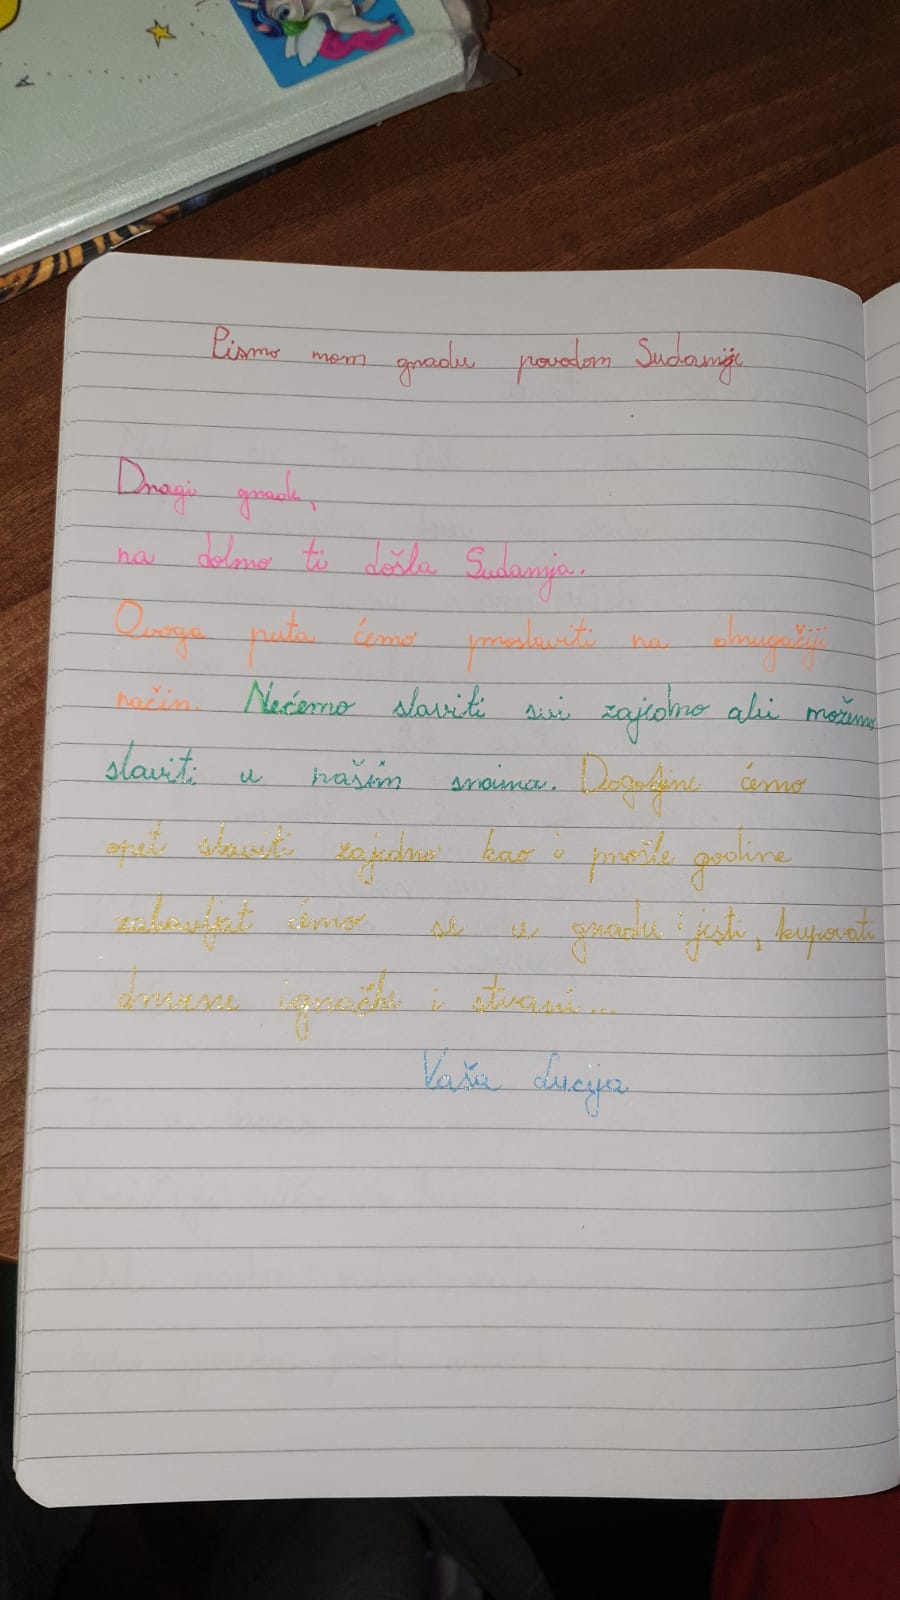 Pismo mom gradu povodom Sudamije
Dragi grade,
na dolmo ti došla Sudamja.
Ovoga puta ćemo proslaviti na drugačiji
način. Nećemo slaviti svi zajedno ali možemo
slaviti u našim srcima. Dogodine ćemo
opet slaviti zajedno kao i prošle godine
zabavljat ćemo se u gradu i jesti, kupovati
drvene igračke i stvari...
Vaša Lucija